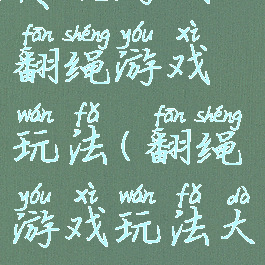 fān shéng yóu xì
翻绳游戏
wán fǎ fān shéng
玩法(翻绳
yóu xì wán fǎ dà
游戏玩法大